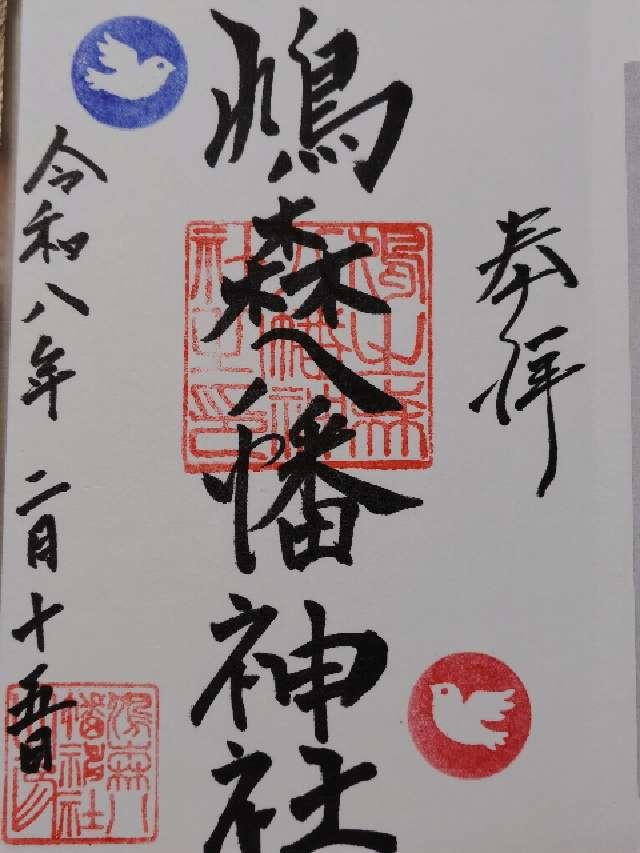 奉拝
鳩森八幡神社
令和八年 二月十五日
鳩之森
八幡神
社之印
鳩森八
幡神社